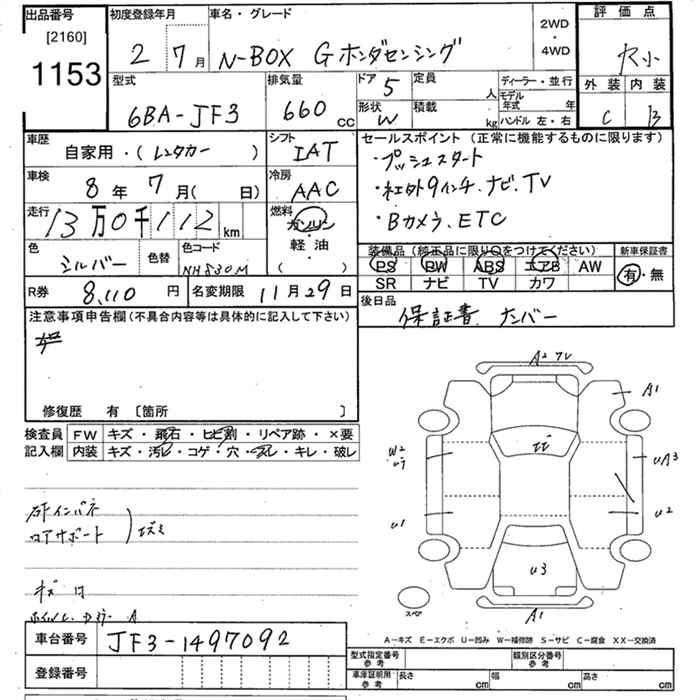 出品番号
[2160]
1153
初度登録年月
2 7月
車名・グレード
N-BOX Gホンダセンシング
2WD
・
4WD
評価点
外装 内装
C B
型式
6BA-JF3
排気量
660 cc
ドア 5
定員 人
形状 W
積載 kg
ディーラー・並行
モデル年式 年
ハンドル 左・右
車歴
自家用・(レンタカー)
シフト
IAT
車検
8年 7月( 日)
冷房
AAC
走行
13万0千112 km
燃料
ガソリン
軽油
・
( )
色
シルバー
色替
色コード
NH830M
セールスポイント(正常に機能するものに限ります)
・プッシュスタート
・社外9インチ.ナビ.TV
・Bカメラ.ETC
装備品(純正品に限り○をつけてください)
PS PW ABS エアB AW
SR ナビ TV カワ
新車保証書
有・無
R券 8,110 円
名変期限 11月29日
後日品
保証書.ナンバー
注意事項申告欄(不具合内容等は具体的に記入して下さい)
修復歴 有 〔箇所 〕
検査員
記入欄
FW キズ・飛石・ヒビ割・リペア跡・×要
内装 キズ・汚レ・コゲ・穴・スレ・キレ・破レ
A2
A1
W2
UA3
U1
U2
U3
A1
スペア
インパネ
コアサポート
A
A－キズ E－エクボ U－凹み W－補修跡 S－サビ C－腐食 XX－交換済
車台番号 JF3-1497092
登録番号
型式指定番号
参考
類別区分番号
参考
車庫証明用
参考
長さ cm 幅 cm 高さ cm